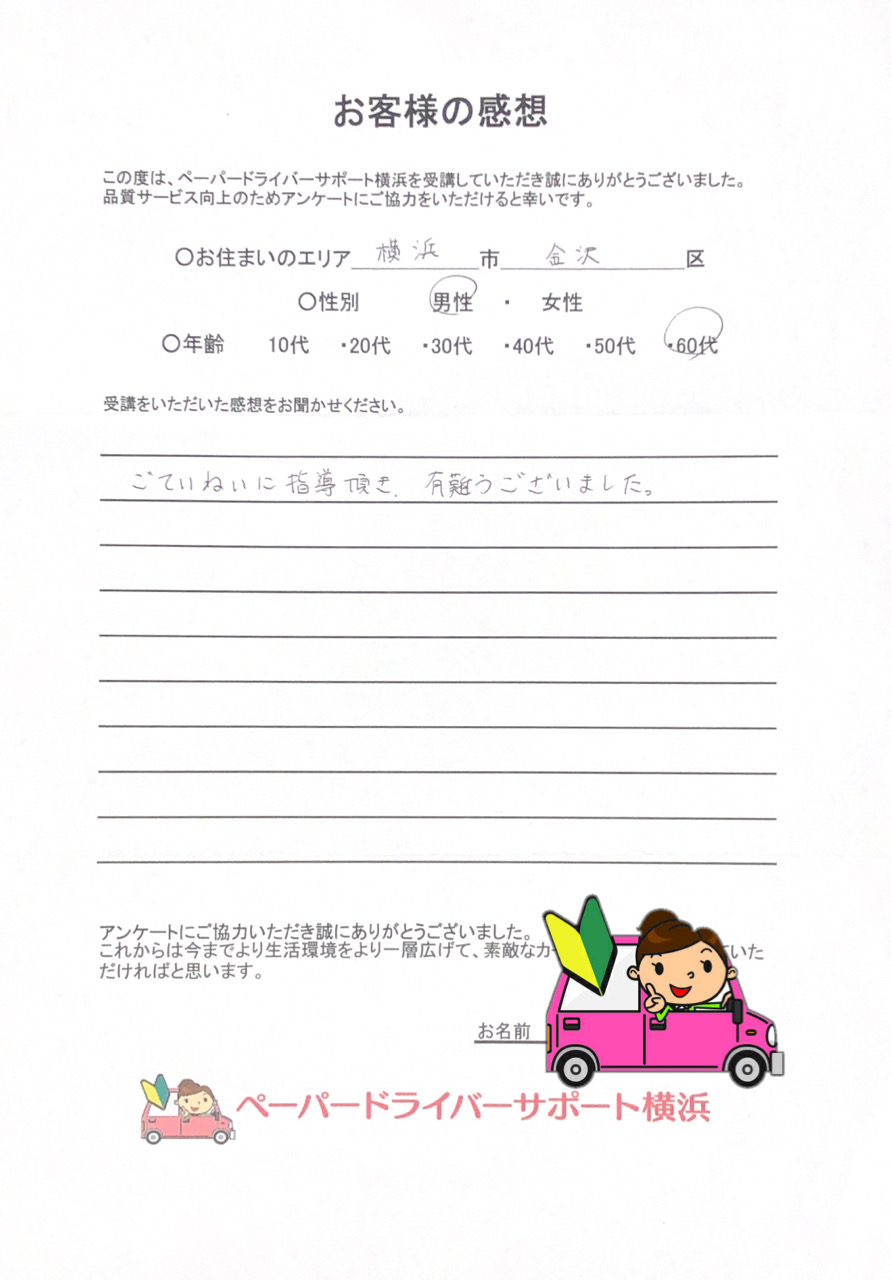 お客様の感想
この度は、ペーパードライバーサポート横浜を受講していただき誠にありがとうございました。
品質サービス向上のためアンケートにご協力をいただけると幸いです。
〇お住まいのエリア 横浜 市 金沢 区
〇性別 男性 ・ 女性
〇年齢 10代 ・20代 ・30代 ・40代 ・50代 ・60代
受講をいただいた感想をお聞かせください。
ごていねいに指導頂き、有難うございました。
アンケートにご協力いただき誠にありがとうございました。
これからは今までより生活環境をより一層広げて、素敵なカ ていた
だければと思います。
お名前
ペーパードライバーサポート横浜